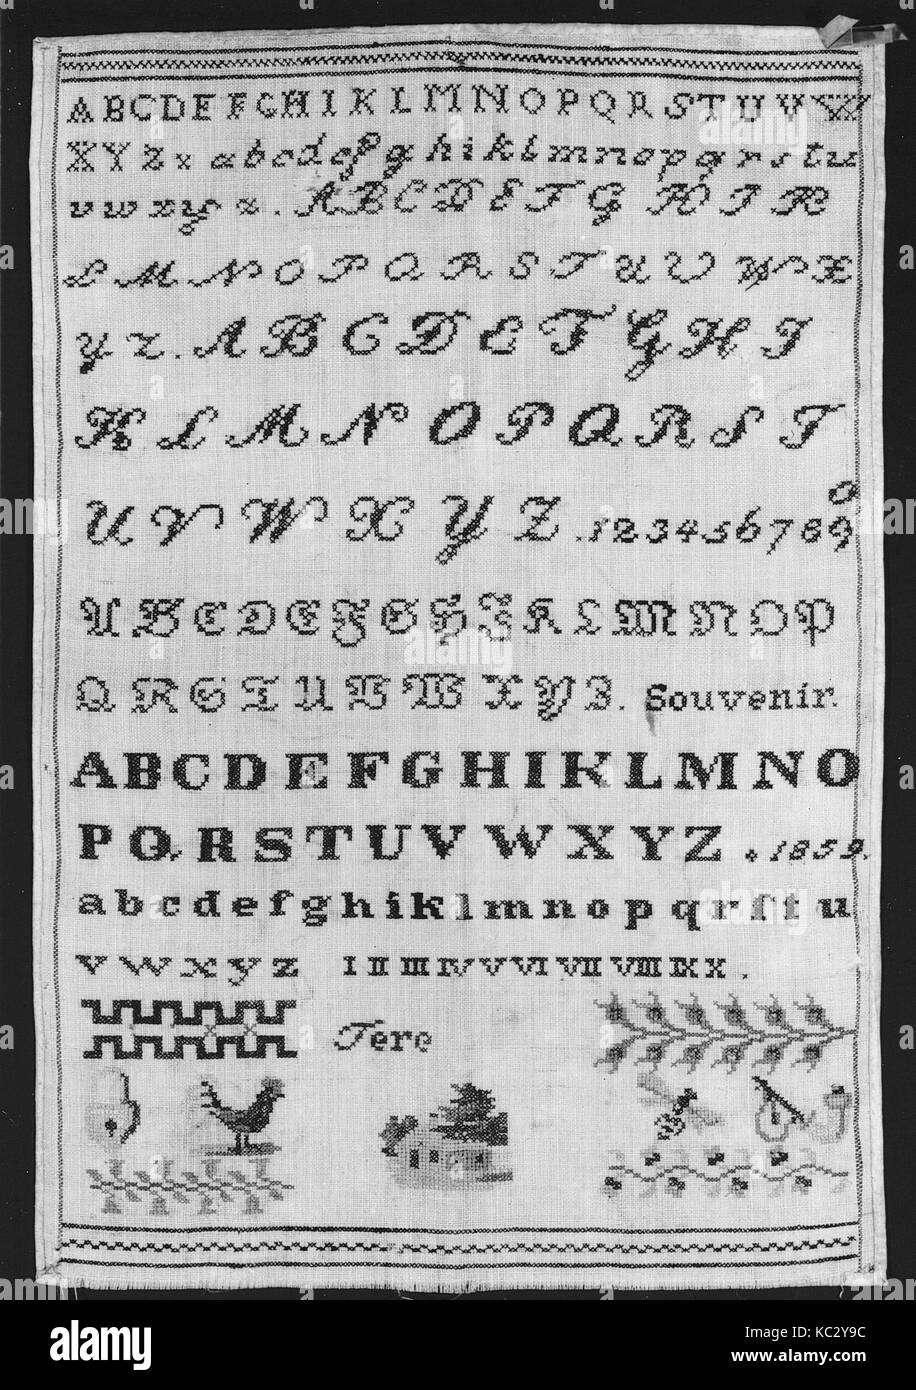 A B C D E F G H I K L M N O P Q R S T U V W
X Y Z x a b c d e f g h i k l m n o p q r s t u
v w x y z . A B C D E F G H I K
L M N O P Q R S T U V W X
Y Z . A B C D E F G H I
K L M N O P Q R S T
U V W X Y Z . 1 2 3 4 5 6 7 8 9 0
A B C D E F G H I K L M N O P
Q R S T U V W X Y Z . Souvenir.
A B C D E F G H I K L M N O
P Q . R S T U V W X Y Z . 1859.
a b c d e f g h i k l m n o p q r ſ t u
v w x y z I II III IV V VI VII VIII IX X .
Tere
alamy
Image ID: KC2Y9C
www.alamy.com